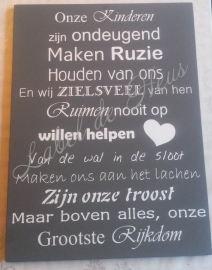 Onze Kinderen
zijn ondeugend
Maken Ruzie
Houden van ons
En wij ZIELSVEEL van hen
Ruimen nooit op
willen helpen
Van de wal in de sloot
Maken ons aan het lachen
Zijn onze troost
Maar boven alles, onze
Grootste Rijkdom